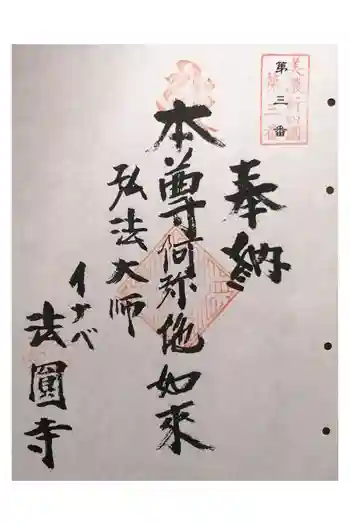 美濃新四國
第三番
第三番
奉納
本尊阿弥陀如来
弘法大師
イナベ
法圓寺